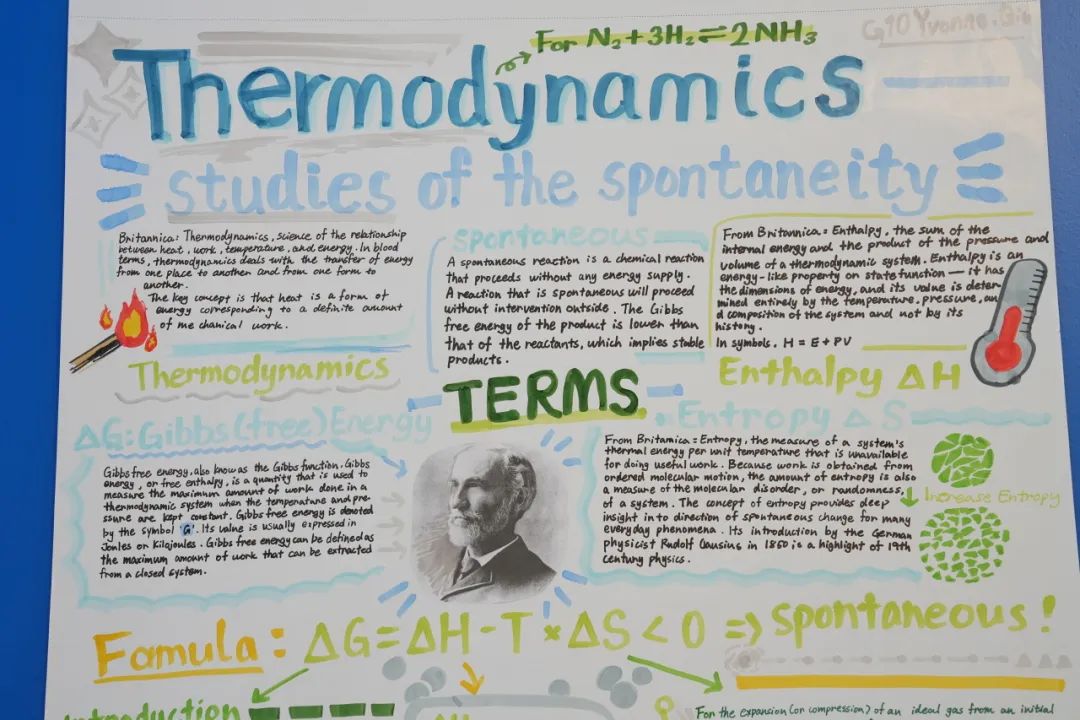 For N₂+3H₂⇌2NH₃
G10 Yvonne.
Thermodynamics
studies of the spontaneity
Britannica: Thermodynamics, science of the relationship
between heat, work, temperature, and energy. In blood
terms, thermodynamics deals with the transfer of energy
from one place to another and from one form to
another.
The key concept is that heat is a form of
energy corresponding to a definite amount
of me chanical work.
Thermodynamics
spontaneous
A spontaneous reaction is a chemical reaction
that proceeds without any energy supply.
A reaction that is spontaneous will proceed
without intervention outside. The Gibbs
free energy of the product is lower than
that of the reactants, which implies stable
products.
From Britannica: Enthalpy, the sum of the
internal energy and the product of the pressure and
volume of a thermodynamic system. Enthalpy is an
energy-like property on state function — it has
the dimensions of energy, and its value is deter-
mined entirely by the temperature, pressure, an
d composition of the system and not by its
history.
In symbols. H = E + PV
Enthalpy ΔH
TERMS
ΔG: Gibbs(free)Energy
Gibbs free energy, also know as the Gibbs function, Gibbs
energy, or free enthalpy, is a quantity that is used to
measure the maximum amount of work done in a
thermodynamic system when the temperature and pre-
ssure are kept constant. Gibbs free energy is denoted
by the symbol 'G'. Its value is usually expressed in
Jonles or Kilojoules. Gibbs free energy can be defined as
the maximum amount of work that can be extracted
from a closed system.
Entropy ΔS
From Britamica: Entropy, the measure of a system's
thermal energy per unit temperature that is unavailable
for doing useful work. Because work is obtained from
ordered molecular motion, the amount of entropy is also
a measure of the molecular disorder, or randomness,
of a system. The concept of entropy provides deep
insight into direction of spontaneous change for many
everyday phenomena. Its introduction by the German
physicist Rudolf Causius in 1850 is a highlight of 19th
century physics.
Increase Entropy
Famula: ΔG=ΔH-T×ΔS<0 => spontaneous!
Introduction
For the expansion (or compression) of an ideal gas from an initial